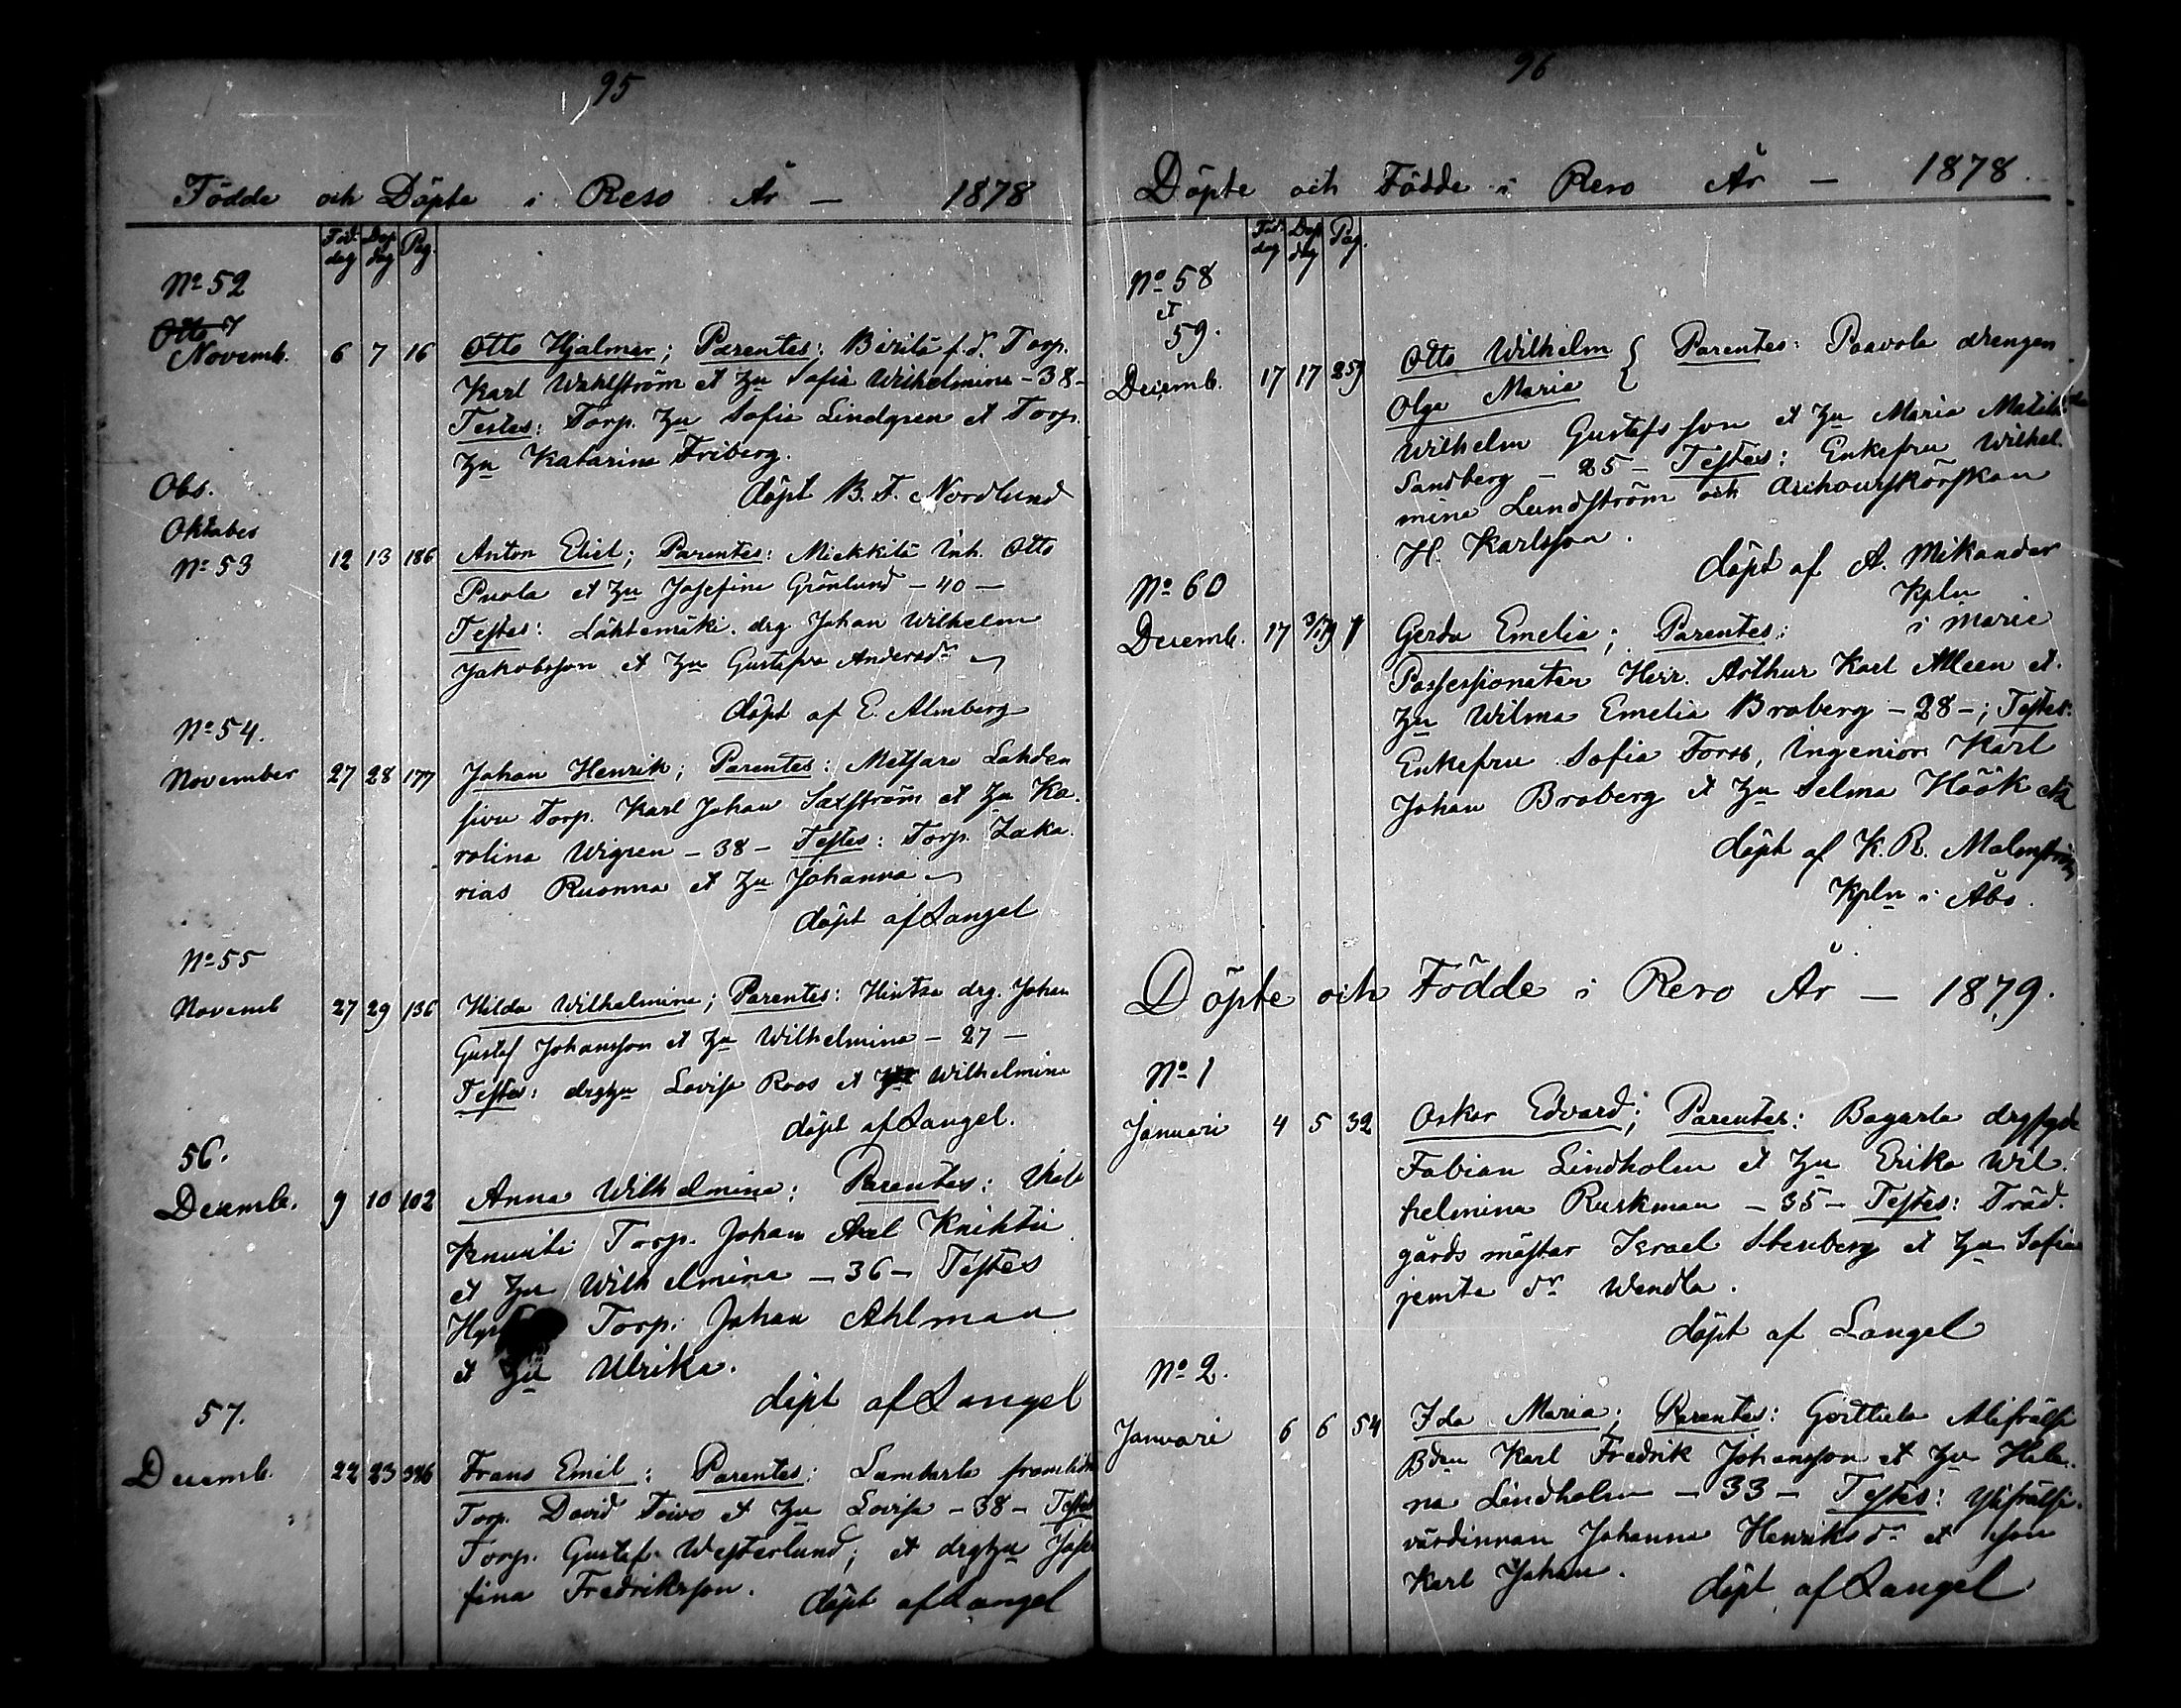 95
Födde och Döpte i Reso År — 1878
Föd. dag Dop dag Pag.
No 52
Otto
Novemb. 6 7 16 Otto Hjalmar; Parentes: Börilä f.d. Torp.
Karl Wahlström et hu Sofia Wilhelmina - 38 -
Testes: Torp. hu Sofia Lindgren et Torp.
hu Katarina Friberg.
döpt B. F. Nordlund
Obs.
Oktober
No 53 12 13 186 Anton Eliel; Parentes: Miekkilä Inh. Otto
Puola et hu Josefina Grönlund - 40 -
Testes: Lähtemäki drg. Johan Wilhelm
Jakobsson et hu Gustafva Andersdr
döpt af E. Almberg
No 54.
November 27 28 177 Johan Henrik; Parentes: Metsaro Lahden
sivu Torp. Karl Johan Saxström et hu Ka-
rolina Wigren - 38 - Testes: Torp. Zaka-
rias Ruonna et hu Johanna
döpt af Langel
No 55
Novemb 27 29 136 Hilda Wilhelmina; Parentes: Hintsa drg. Johan
Gustaf Johansson et hu Wilhelmina - 27 -
Testes: drghu Lovisa Roos et Wilhelmina
döpt af Langel.
56.
Decemb. 9 10 102 Anna Wilhelmina; Parentes:
Knuuti Torp. Johan Axel Knihti
et hu Wilhelmina - 36 - Testes
Torp. Johan Ahlman
et hu Ulrika.
döpt af Langel
57.
Decemb. 22 23 326 Frans Emil; Parentes: Lambarla framlidn
Torp. David Toivo et hu Lovisa - 38 - Testes
Torp. Gustaf Westerlund; et drghu Jose
fina Fredriksson. döpt af Langel
96
Döpte och Födde i Reso År — 1878.
Föd. dag Dop dag Pag.
No 58
et
59.
Decemb. 17 17 259 Otto Wilhelm { Parentes: Paavola drengen
Olga Maria {
Wilhelm Gustafsson et hu Maria Matilda
Sandberg - 25 - Testes: Enkefru Wilhel-
mina Lundström och
H. Karlsson.
döpt af A. Mikander
Kpln
i Marie
No 60
Decemb. 17 3/1 79 1 Gerda Emelia; Parentes:
Possessionaten Herr. Arthur Karl Alleen et.
hu Wilma Emelia Broberg - 28 -; Testes:
Enkefru Sofia Forss, Ingeniör Karl
Johan Broberg et hu Selma Höök etc
döpt af K. R. Malmström
Kpln i Åbo.
Döpte och Födde i Reso År — 1879.
No 1
Januari 4 5 32 Oskar Edvard; Parentes: Bagarla
Fabian Lindholm et hu Erika Wil-
helmina Ruskman - 35 - Testes: Träd-
gårds mästar Israel Stenberg et hu Sofia
jemte dr Wendla.
döpt af Langel
No 2.
Januari 6 6 54 Ida Maria; Parentes: Alifrälsi
Bden Karl Fredrik Johansson et hu Hele-
na Lindholm - 33 - Testes: Ylifrälsi
värdinnan Johanna Henriksdr et son
Karl Johan.
döpt af Langel